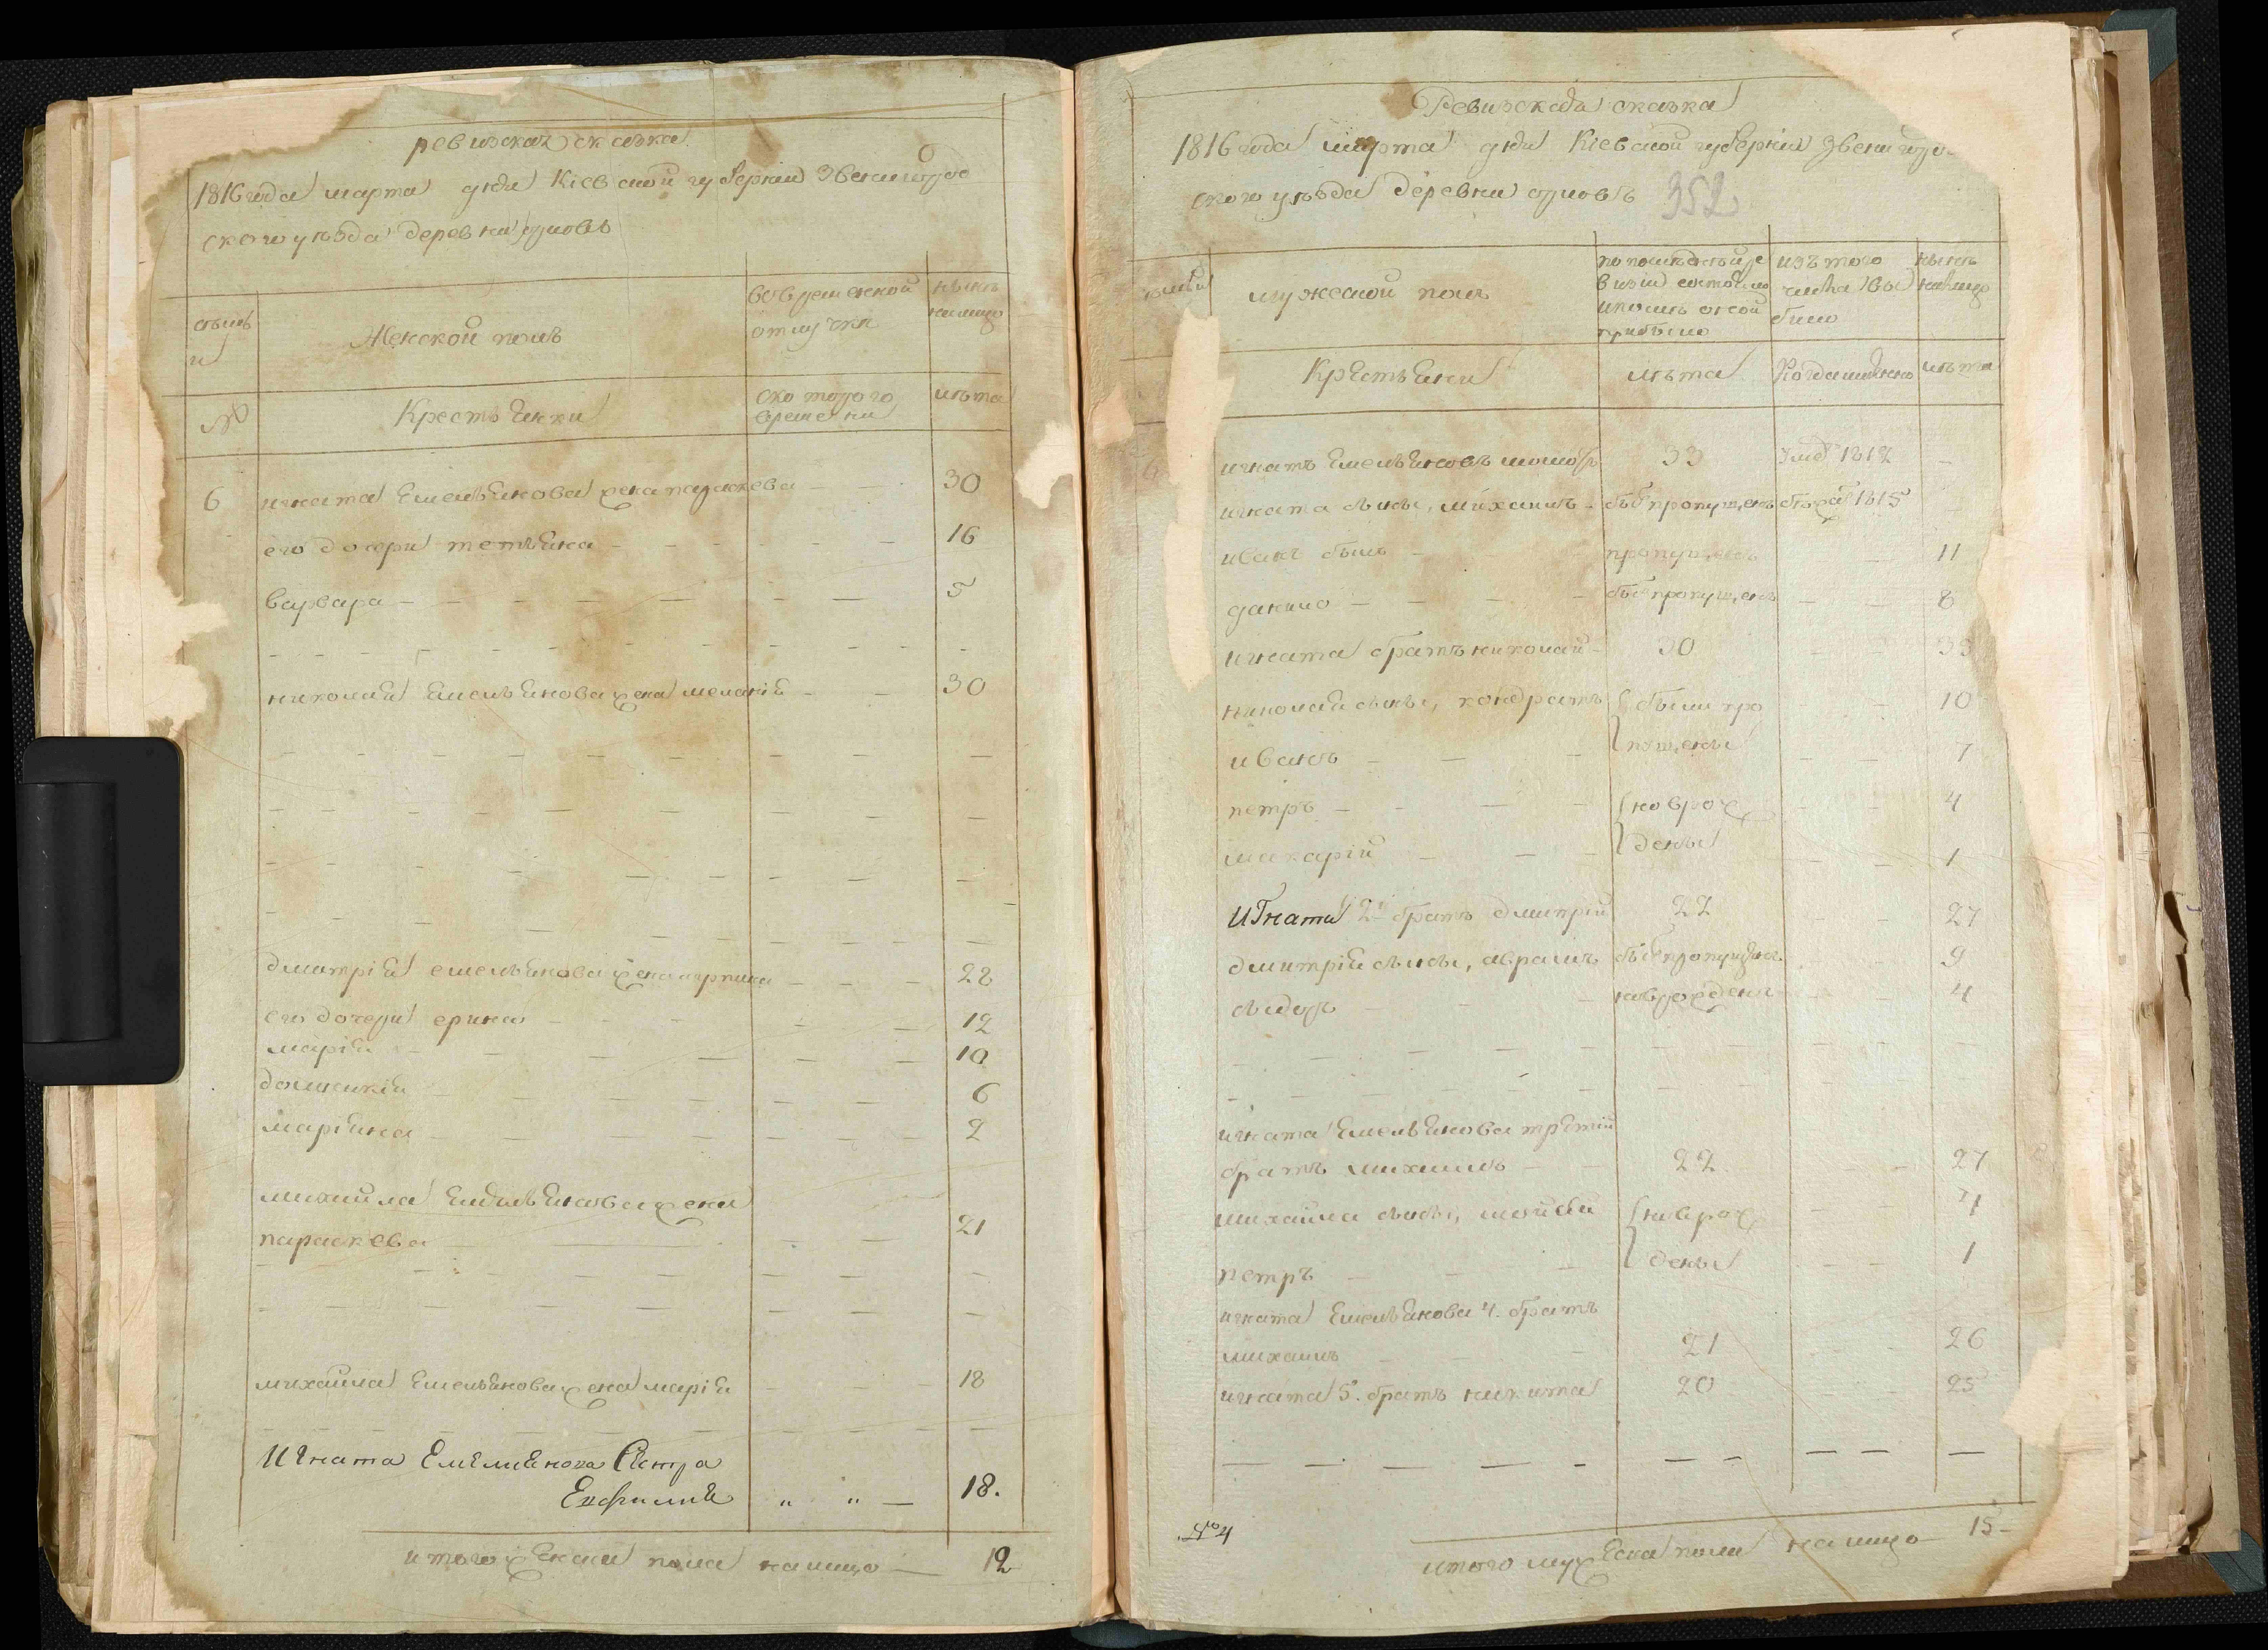 ревизская сказка
1816 года марта дня Кіевской губерніи Звенигород
ского уѣзда деревни
семьи
Женской полъ
во временной отлучки
нынѣ на лицо
№
Крестьянки
с которого времени
лѣта
6 игната Емельянова жена параскева — — 30
его дочери тетяна — — — — — — 16
варвара — — — — — — — 5
николай Емельянова жена меланія — — 30
дмитрій емельянова жена — — — 28
его дочери ерина — — — — — 12
марія — — — — — — 10
домникія — — — — — — 6
маріяна — — — — — — 2
михайла Емельянова жена
параскева — — — 21
михайла Емельянова жена марія — — 18
Игната Емелианова Сестра
Евфимия " " — 18.
итого женска пола налицо — 12
Ревизская сказка
1816 года марта дня Кіевской губерніи Звенигород
ского уѣзда деревни
352
семьи
мужеской полъ
по послѣдней ревизіи состояло и послѣ оной прибыло
изъ того числа выбыло
нынѣ на лицо
Крестьяни
лѣта
Когда именно
лѣта
игнатъ Емельяновъ 33 умер 1812 —
игната сыны, михаилъ — быв пропущенъ 1815
иванъ былъ — пропущенъ — 11
данило — — — — быв пропущенъ — — 8
игната братъ николай — 30 — — 35
николая сыны, кондратъ { были про — 10
иванъ — — — { пущены — — 7
петръ — — — — { новрож — — 4
макарій — — — { дены — — 1
Игната 2й братъ дмитрій 22 — — 27
дмитрія сыны, аврамъ быв пропущенъ — 9
сидоръ — — — новрожденъ — — 4
игната Емельянова третій
братъ михаилъ — — 22 — — 27
михайла сыны, { новрож — — 4
петръ — — — { дены — — 1
игната Емельянова 4. братъ
михаилъ — — 21 — — 26
игната 5. братъ никита 20 — 25
№ 4
итого мужеска пола налицо 15 —